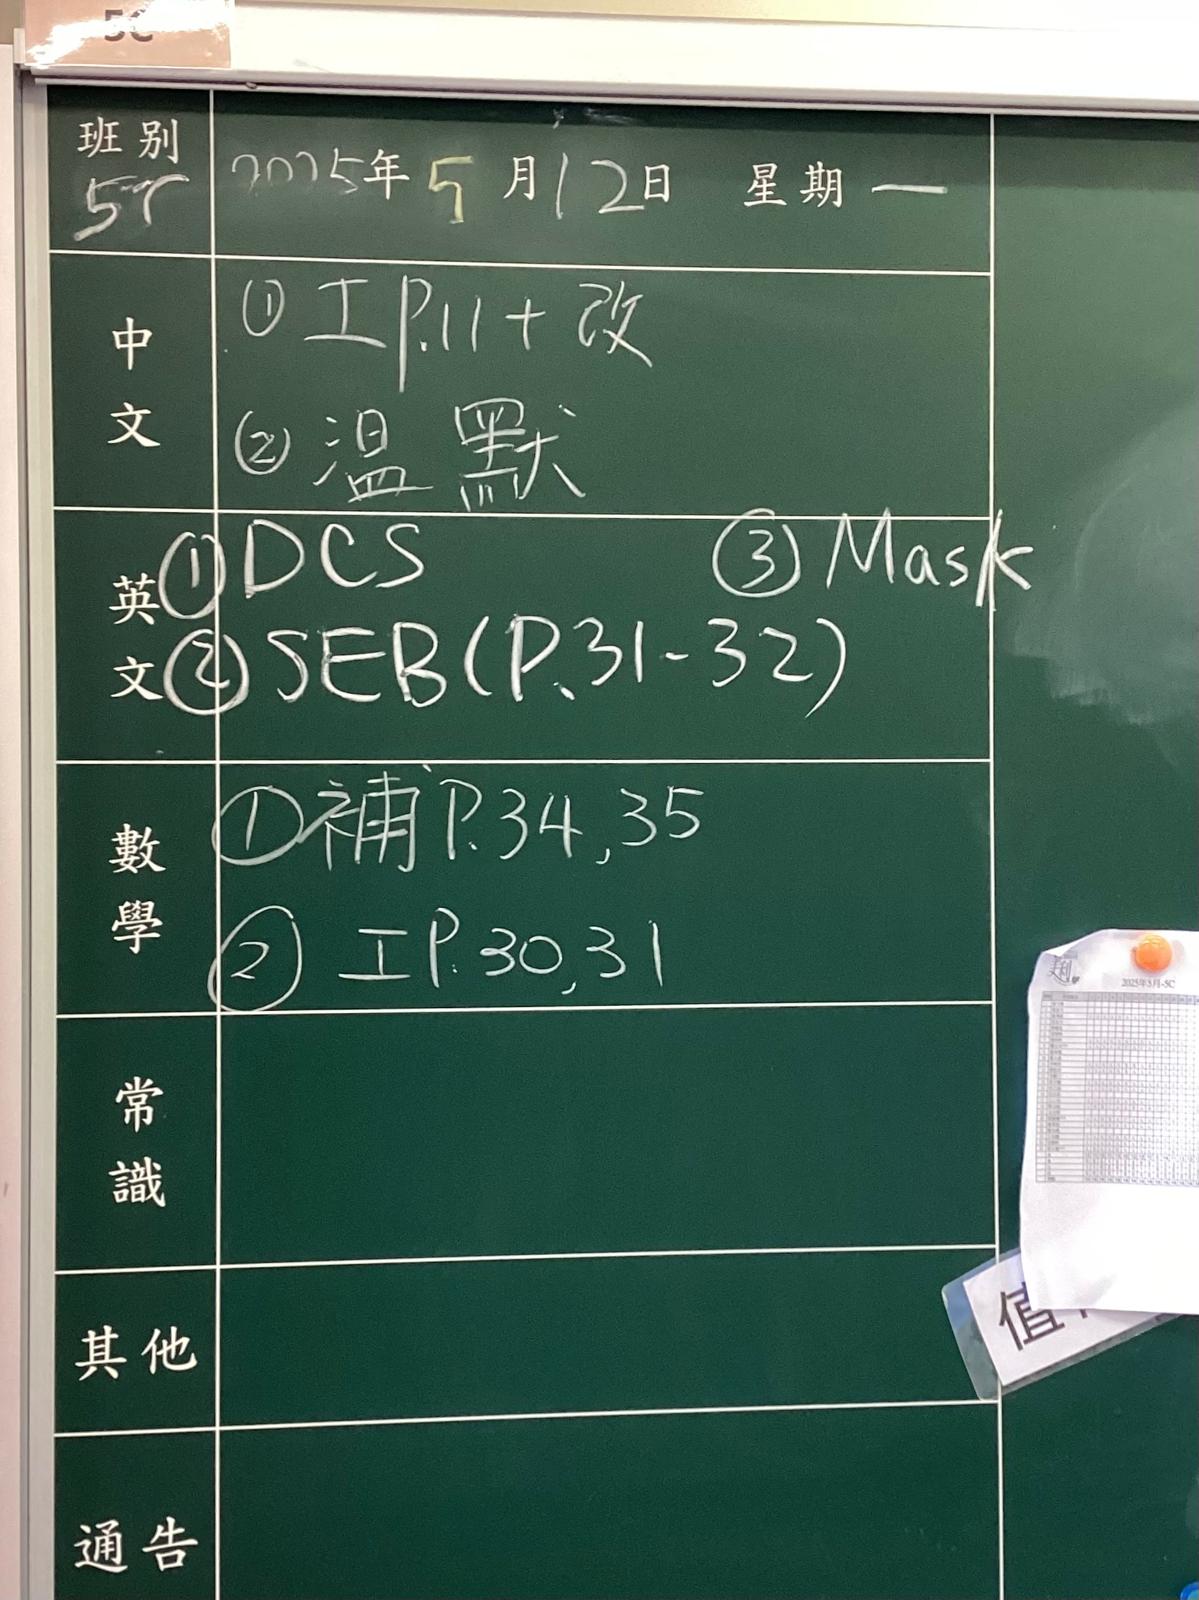 5C
班別
2025年5月12日 星期一
中文
① 工P.11+改
② 温默
英文
① DCS ③ Mask
② SEB(P.31-32)
數學
① 補P.34,35
② 工P.30,31
常識
其他
通告
2025年5月-5C
值